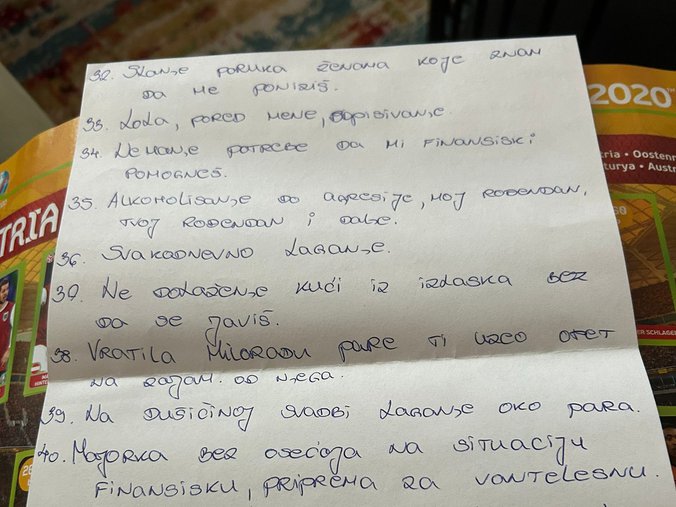 32. Slanje poruka ženama koje znam
da me poniziš.
33. Loža, pored mene, dopisivanje.
34. Nemanje potrebe da mi finansiski
pomogneš.
35. Alkoholisanje do agresije, moj rođendan,
tvoj rođendan i dalje.
36. Svakodnevno laganje.
37. Ne dolaženje kući iz izlaska bez
da se javiš.
38. Vratila Miloradu pare ti uzeo opet
na zajam od njega.
39. Na Dušičinoj svadbi laganje oko para.
40. Majorka bez osećaja na situaciju
finansisku, priprema za vantelesnu.
2020
tria • Oostenr
turya • Aust
TRIA